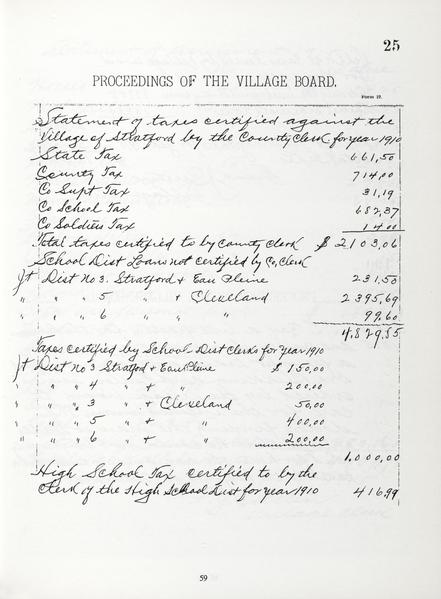 25
PROCEEDINGS OF THE VILLAGE BOARD.
Form 12.
Statement of taxes certified against the
Village of Stratford by the County Clerk for year 1910
State Tax 661,50
County Tax 714,00
Co Supt Tax 31,19
Co School Tax 682,37
Co Soldiers Tax 14 00
Total taxes certified to by County Clerk $ 2,103,06
School Dist Loans not certified by Co, Clerk
Jt Dist No 3. Stratford + Eau Pleine 231,50
" " " 5 " + Cleveland 2395,69
" " " 6 " " " 99.60
4,829,85
Taxes certified by School Dist Clerks for year 1910
Jt Dist no 3 Stratford + Eau Pleine $ 150,00
" " " 4 " + " 200,00
" " " 3 " + Cleveland 50,00
" " " 5 " + " 400,00
" " " 6 " + " 200,00
1,000,00
High School Tax certified to by the
Clerk of the High School Dist for year 1910 416,99
59